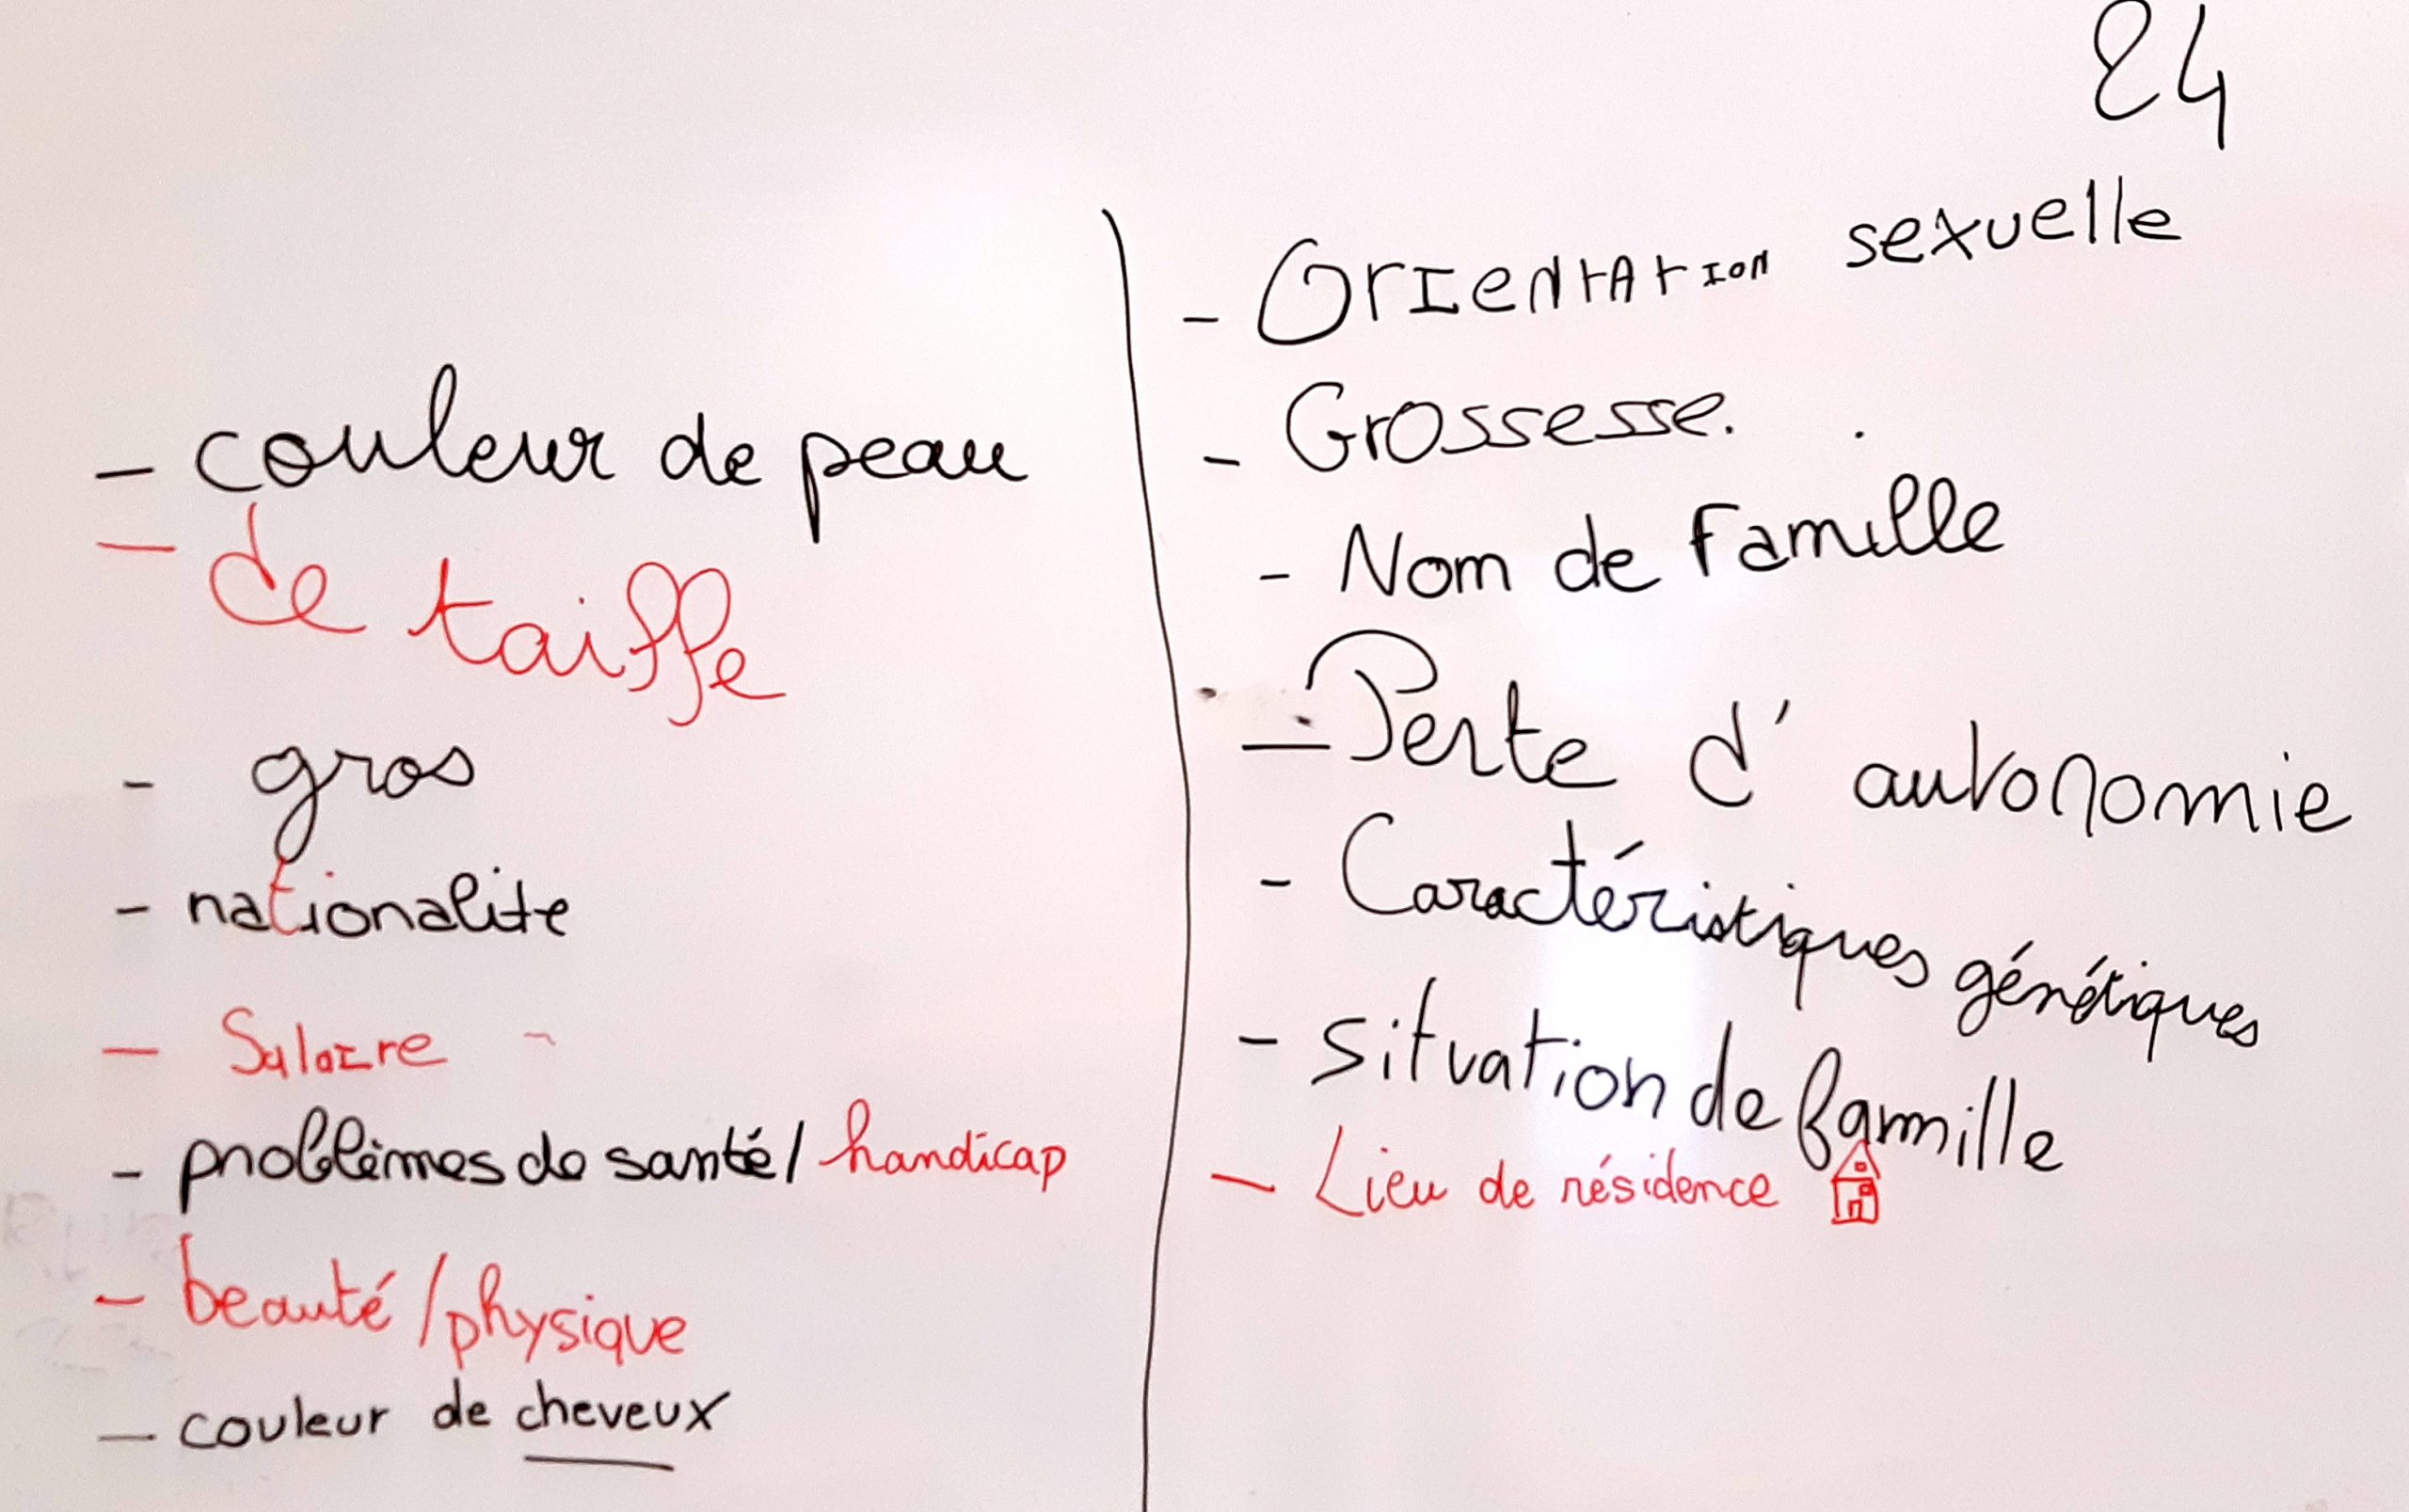 24
- couleur de peau
- de taille
- gros
- nationalite
- Salaire -
- problèmes de santé / handicap
- beauté / physique
- couleur de cheveux
- Orientation sexuelle
- Grossesse.
- Nom de Famille
- Perte d'autonomie
- Caractéristiques génétiques
- Situation de famille
- Lieu de résidence